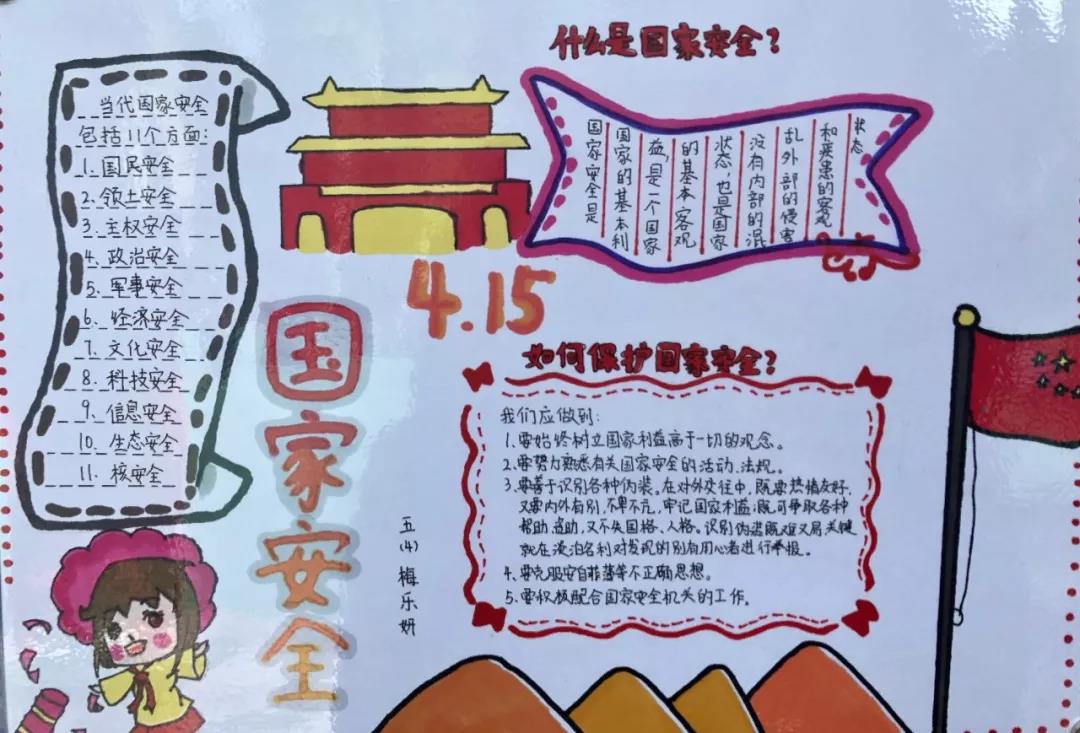 当代国家安全
包括11个方面:
1.国民安全
2.领土安全
3.主权安全
4.政治安全
5.军事安全
6.经济安全
7.文化安全
8.科技安全
9.信息安全
10.生态安全
11.核安全
什么是国家安全?
国家安全是
国家的基本利
益,是一个国家
的基本客观
状态,也是国家
没有内部的混
乱外部的侵害
和疾患的客观
状态
4.15
国家安全
如何保护国家安全?
我们应做到:
1.要始终树立国家利益高于一切的观念。
2.要努力熟悉有关国家安全的活动、法规。
3.要善于识别各种伪装。在对外交往中,既要热情友好,
又要内外有别,不卑不亢,牢记国家利益;既可争取各种
帮助、资助,又不失国格、人格。识别伪装既难又易,关键
就在淡泊名利对发现的别有用心者进行举报。
4.要克服妄自菲薄等不正确思想。
5.要积极配合国家安全机关的工作。
五(4)梅乐妍